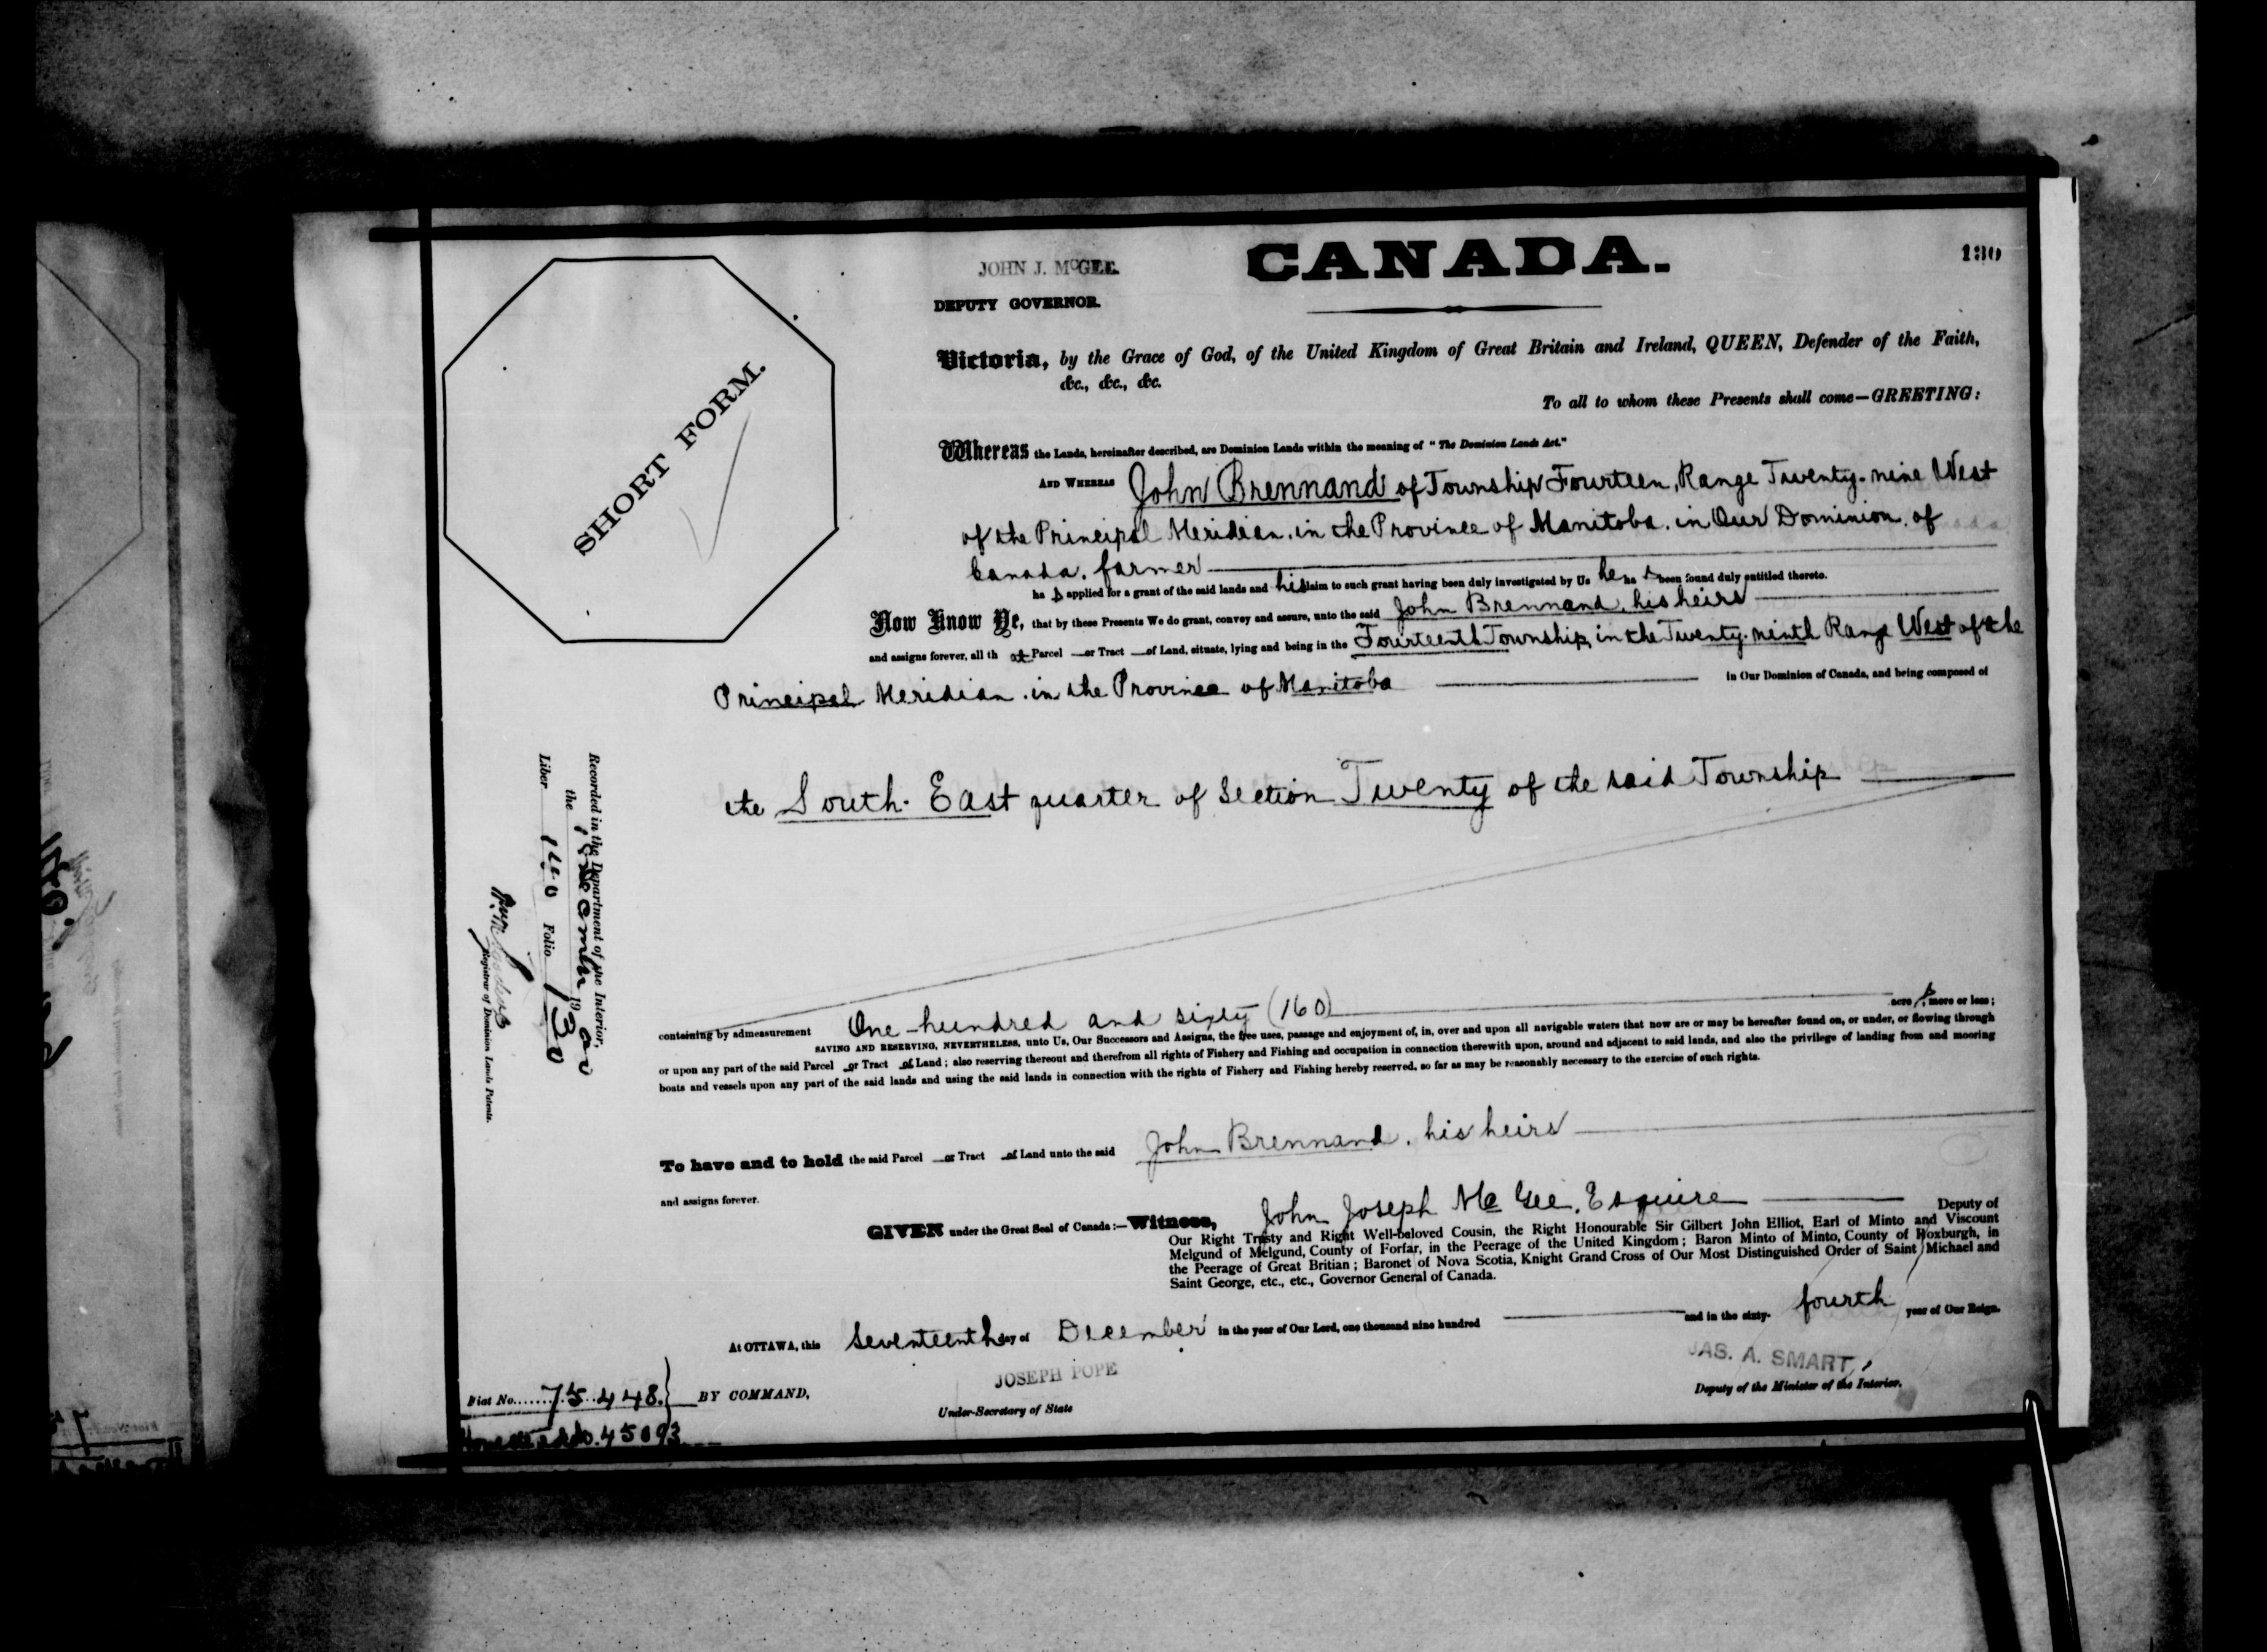 JOHN J. McGEE.
CANADA.
130
DEPUTY GOVERNOR.
Victoria, by the Grace of God, of the United Kingdom of Great Britain and Ireland, QUEEN, Defender of the Faith,
&c., &c., &c.
To all to whom these Presents shall come—GREETING:
SHORT FORM.
Whereas the Lands, hereinafter described, are Dominion Lands within the meaning of "The Dominion Lands Act."
AND WHEREAS John Brennand of Township Fourteen, Range Twenty-nine West
of the Principal Meridian, in the Province of Manitoba, in Our Dominion of
Canada, farmer
has applied for a grant of the said lands and his claim to such grant having been duly investigated by Us he has been found duly entitled thereto.
Now Know Ye, that by these Presents We do grant, convey and assure, unto the said John Brennand, his heirs
and assigns forever, all that Parcel or Tract of Land, situate, lying and being in the Fourteenth Township, in the Twenty-ninth Range West of the
Principal Meridian, in the Province of Manitoba in Our Dominion of Canada, and being composed of
the South-East quarter of Section Twenty of the said Township
containing by admeasurement One hundred and sixty (160) acres, more or less;
SAVING AND RESERVING, NEVERTHELESS, unto Us, Our Successors and Assigns, the free uses, passage and enjoyment of, in, over and upon all navigable waters that now are or may be hereafter found on, or under, or flowing through
or upon any part of the said Parcel or Tract of Land; also reserving thereout and therefrom all rights of Fishery and Fishing and occupation in connection therewith upon, around and adjacent to said lands, and also the privilege of landing from and mooring
boats and vessels upon any part of the said lands and using the said lands in connection with the rights of Fishery and Fishing hereby reserved, so far as may be reasonably necessary to the exercise of such rights.
To have and to hold the said Parcel or Tract of Land unto the said John Brennand, his heirs
and assigns forever.
GIVEN under the Great Seal of Canada:—Witness, John Joseph McGee, Esquire Deputy of
Our Right Trusty and Right Well-beloved Cousin, the Right Honourable Sir Gilbert John Elliot, Earl of Minto and Viscount
Melgund of Melgund, County of Forfar, in the Peerage of the United Kingdom; Baron Minto of Minto, County of Roxburgh, in
the Peerage of Great Britian; Baronet of Nova Scotia, Knight Grand Cross of Our Most Distinguished Order of Saint Michael and
Saint George, etc., etc., Governor General of Canada.
At OTTAWA, this seventeenth day of December in the year of Our Lord, one thousand nine hundred and in the sixty-fourth year of Our Reign.
JAS. A. SMART,
Deputy of the Minister of the Interior.
JOSEPH POPE
Under-Secretary of State
Fiat No. 75448. BY COMMAND,
Homestead No. 45093
Recorded in the Department of the Interior,
the December 19
Liber 140 Folio 130
Registrar of Dominion Lands Patents.